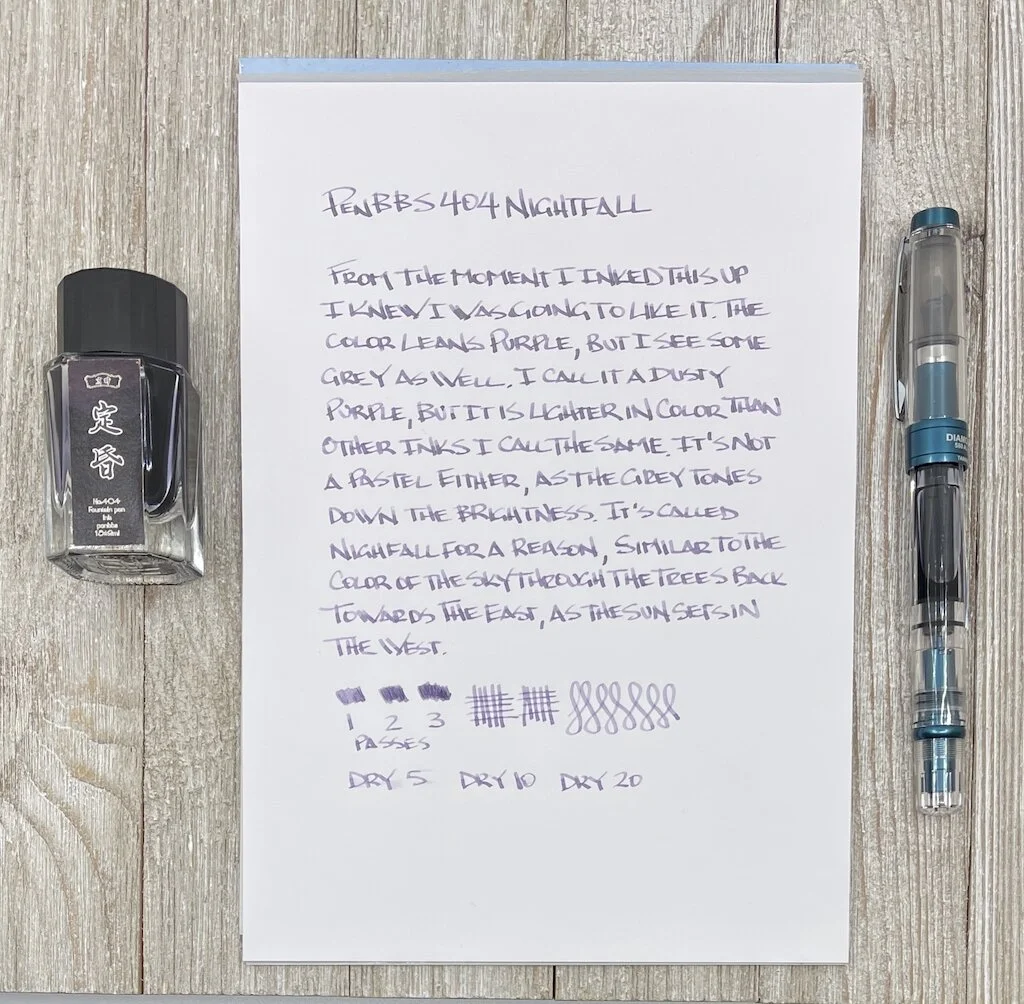 PenBBS 404 NIGHTFALL
FROM THE MOMENT I INKED THIS UP
I KNEW I WAS GOING TO LIKE IT. THE
COLOR LEANS PURPLE, BUT I SEE SOME
GREY AS WELL. I CALL IT A DUSTY
PURPLE, BUT IT IS LIGHTER IN COLOR THAN
OTHER INKS I CALL THE SAME. IT'S NOT
A PASTEL EITHER, AS THE GREY TONES
DOWN THE BRIGHTNESS. IT'S CALLED
NIGHFALL FOR A REASON, SIMILAR TO THE
COLOR OF THE SKY THROUGH THE TREES BACK
TOWARDS THE EAST, AS THE SUN SETS IN
THE WEST.
1 2 3
PASSES
DRY 5 DRY 10 DRY 20
定
昏
No.404
Fountain pen
ink
penbbs
DIAM